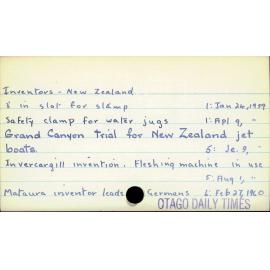 Inventors - New Zealand
in slot for stamp 1: Jan 24, 1959
Safety clamp for water jugs 1: Apl 9, "
Grand Canyon Trial for New Zealand jet
boats. 5: Je. 9, "
Invercargill invention. Fleshing machine in use
5: Aug 1, "
Mataura inventor leads Germans 6: Feb 27, 1960
OTAGO DAILY TIMES